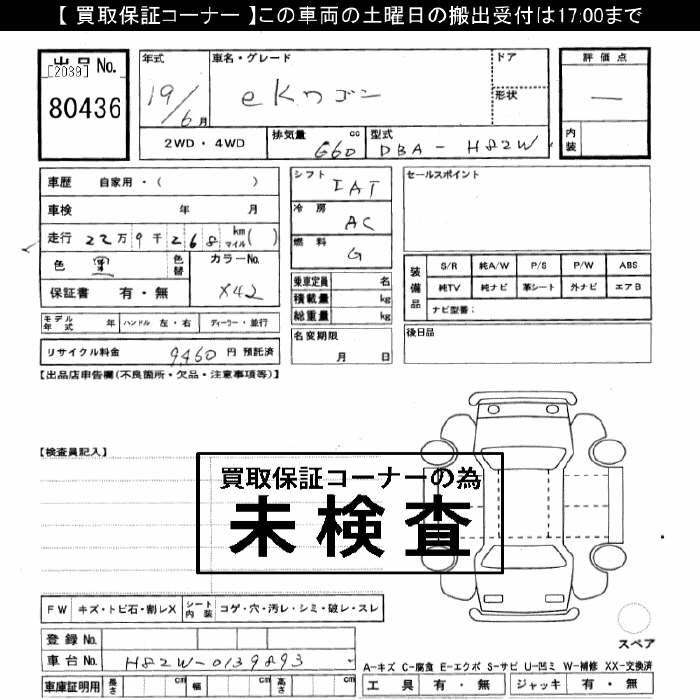 【 買取保証コーナー 】この車両の土曜日の搬出受付は17:00まで
出品 No.
[2039]
80436
年式
19/6月
車名・グレード
eKワゴン
ドア
形状
評価点
—
内装
2WD・4WD
排気量
cc
660
型式
DBA - H82W
車歴 自家用・( )
車検 年 月
走行 22万9千268 km マイル ( )
色 黒
色替
カラーNo.
X42
保証書 有・無
モデル年式 年
ハンドル 左・右
ディーラー・並行
リサイクル料金 9,460 円 預託済
シフト
IAT
冷房
AC
燃料
G
乗車定員 名
積載量 kg
総重量 kg
名変期限
月 日
セールスポイント
装備品
S/R 純A/W P/S P/W ABS
純TV 純ナビ 革シート 外ナビ エアB
ナビ型番:
後日品
【出品店申告欄(不良箇所・欠品・注意事項等)】
【検査員記入】
買取保証コーナーの為
未検査
FW キズ・トビ石・割レX
シート内装 コゲ・穴・汚レ・シミ・破レ・スレ
登録 No.
車台 No. H82W-0139893
車庫証明用 長さ cm 幅 cm 高さ cm
スペア
A-キズ C-腐食 E-エクボ S-サビ U-凹ミ W-補修 XX-交換済
工具 有・無 ジャッキ 有・無